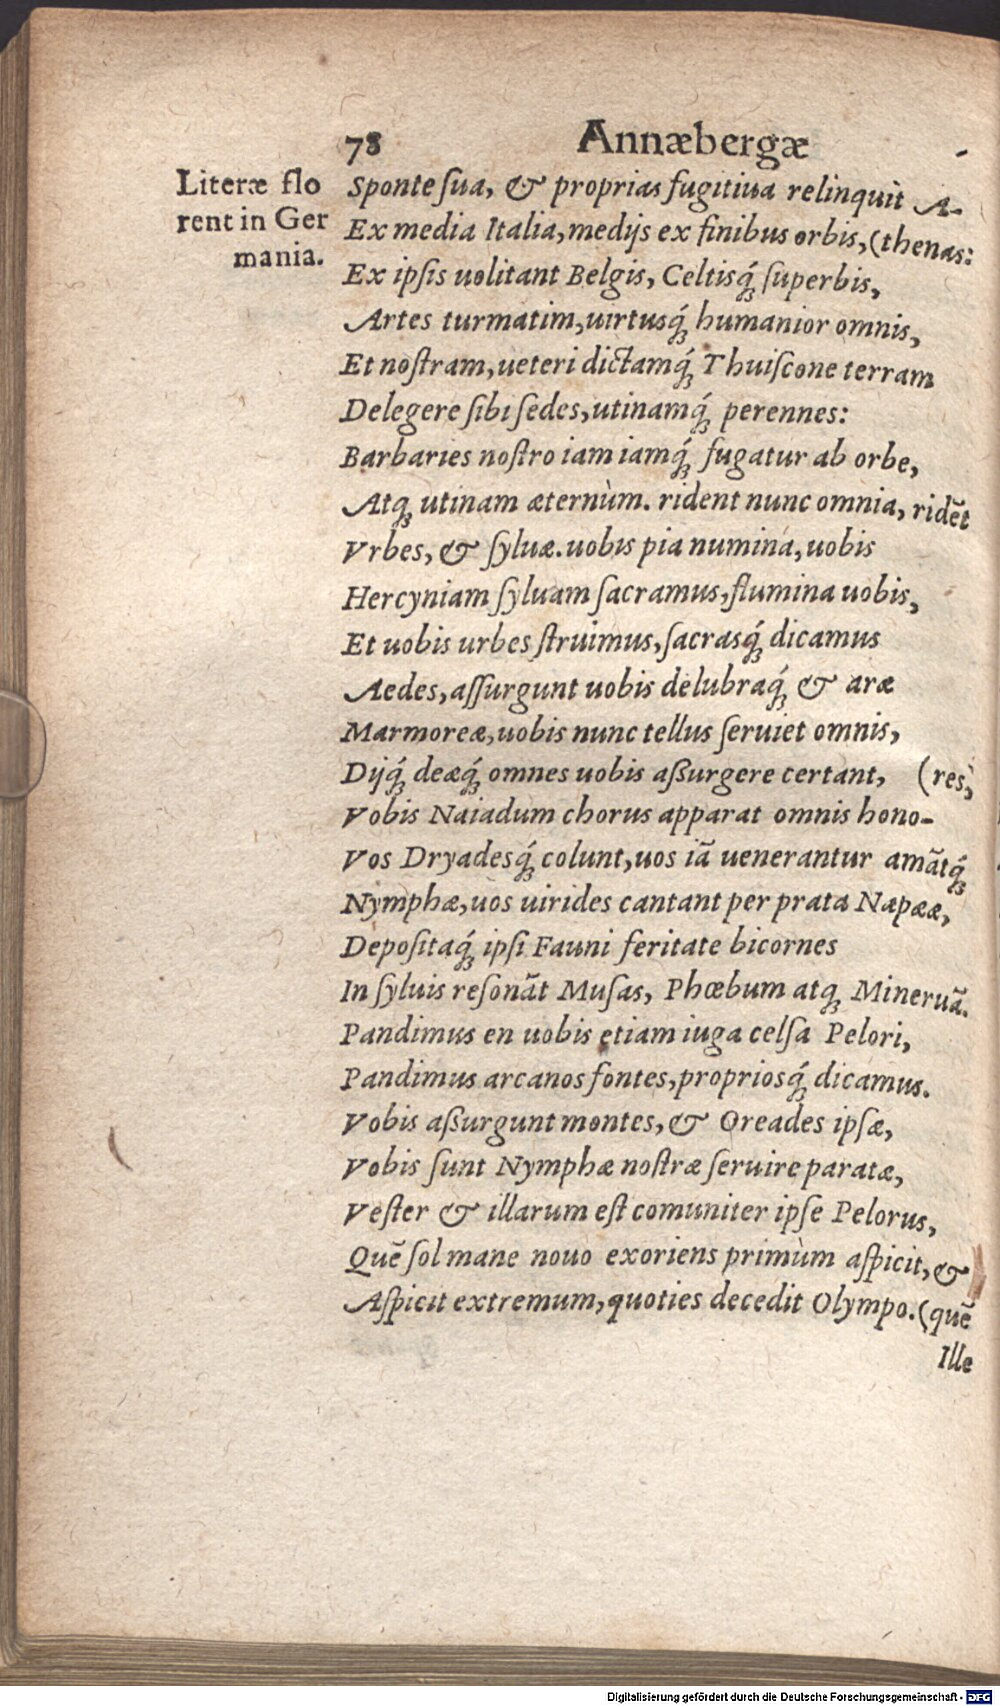 78 Annæbergæ
Literæ flo
rent in Ger
mania.
Sponte ſua, & proprias fugitiua relinquit A-
Ex media Italia, medijs ex finibus orbis, (thenas:
Ex ipſis uolitant Belgis, Celtisq́ꝫ ſuperbis,
Artes turmatim, uirtusq́ꝫ humanior omnis,
Et noſtram, ueteri dictamq́ꝫ Thuiſcone terram
Delegere ſibi ſedes, utinamq́ꝫ perennes:
Barbaries noſtro iam iamq́ꝫ fugatur ab orbe,
Atqꝫ utinam æternùm. rident nunc omnia, ridẽt
Vrbes, & ſyluæ. uobis pia numina, uobis
Hercyniam ſyluam ſacramus, flumina uobis,
Et uobis urbes ſtruimus, ſacrasq́ꝫ dicamus
Aedes, aſſurgunt uobis delubraq́ꝫ & aræ
Marmoreæ, uobis nunc tellus ſeruiet omnis,
Dijq́ꝫ deæq́ꝫ omnes uobis aßurgere certant, (res,
Vobis Naiadum chorus apparat omnis hono-
Vos Dryadesq́ꝫ colunt, uos iã uenerantur amãtq́ꝫ
Nymphæ, uos uirides cantant per prata Napææ,
Depoſitaq́ꝫ ipſi Fauni feritate bicornes
In ſyluis reſonãt Muſas, Phœbum atqꝫ Mineruã.
Pandimus en uobis etiam iuga celſa Pelori,
Pandimus arcanos fontes, propriosq́ꝫ dicamus.
Vobis aßurgunt montes, & Oreades ipſæ,
Vobis ſunt Nymphæ noſtræ ſeruire paratæ,
Veſter & illarum eſt comuniter ipſe Pelorus,
Quẽ ſol mane nouo exoriens primùm aſpicit, &
Aſpicit extremum, quoties decedit Olympo. (quẽ
Ille
Digitalisierung gefördert durch die Deutsche Forschungsgemeinschaft - DFG